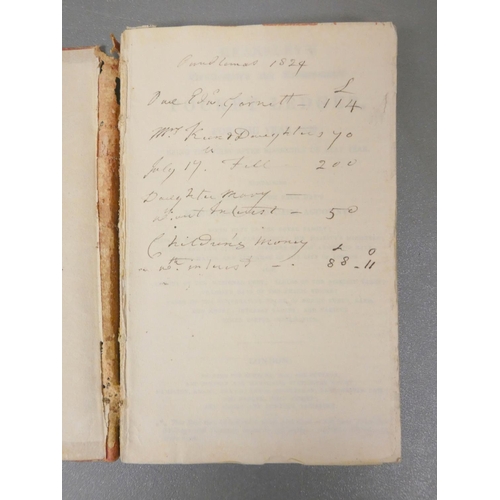 Candlemas 1824
£
Owe Edw. Garnett - 114
Mrs & Daughters 70
July 19th Fell 200
Daughter Mary -
without Interest - 50
Children's Money
£ 0
with interest - 88-11